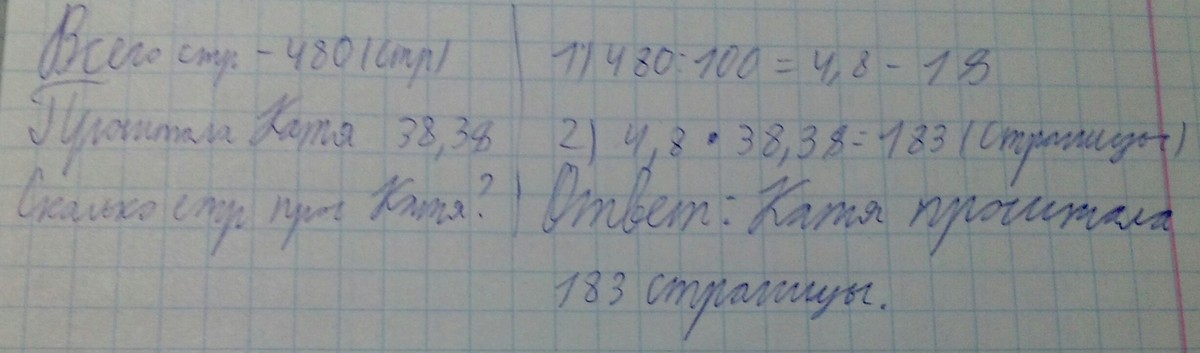 Всего стр - 480 (стр)
Прочитала Катя 38,38
Сколько стр проч Катя?
1) 480:100 = 4,8 - 1 %
2) 4,8 · 38,38 = 183 (страницы)
Ответ: Катя прочитала
183 страницы.